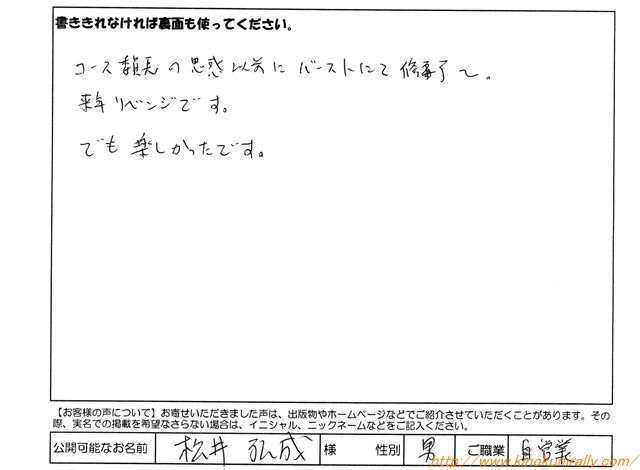 書ききれなければ裏面も使ってください。
コース委員長の思惑以前にバーストにて修了〜。
来年リベンジです。
でも楽しかったです。
【お客様の声について】お寄せいただきました声は、出版物やホームページなどでご紹介させていただくことがあります。その
際、実名での掲載を希望なさらない場合は、イニシャル、ニックネームなどをご記入ください。
公開可能なお名前 松井 弘成 様 性別 男 ご職業 自営業
http://www.kinokunirally.com/